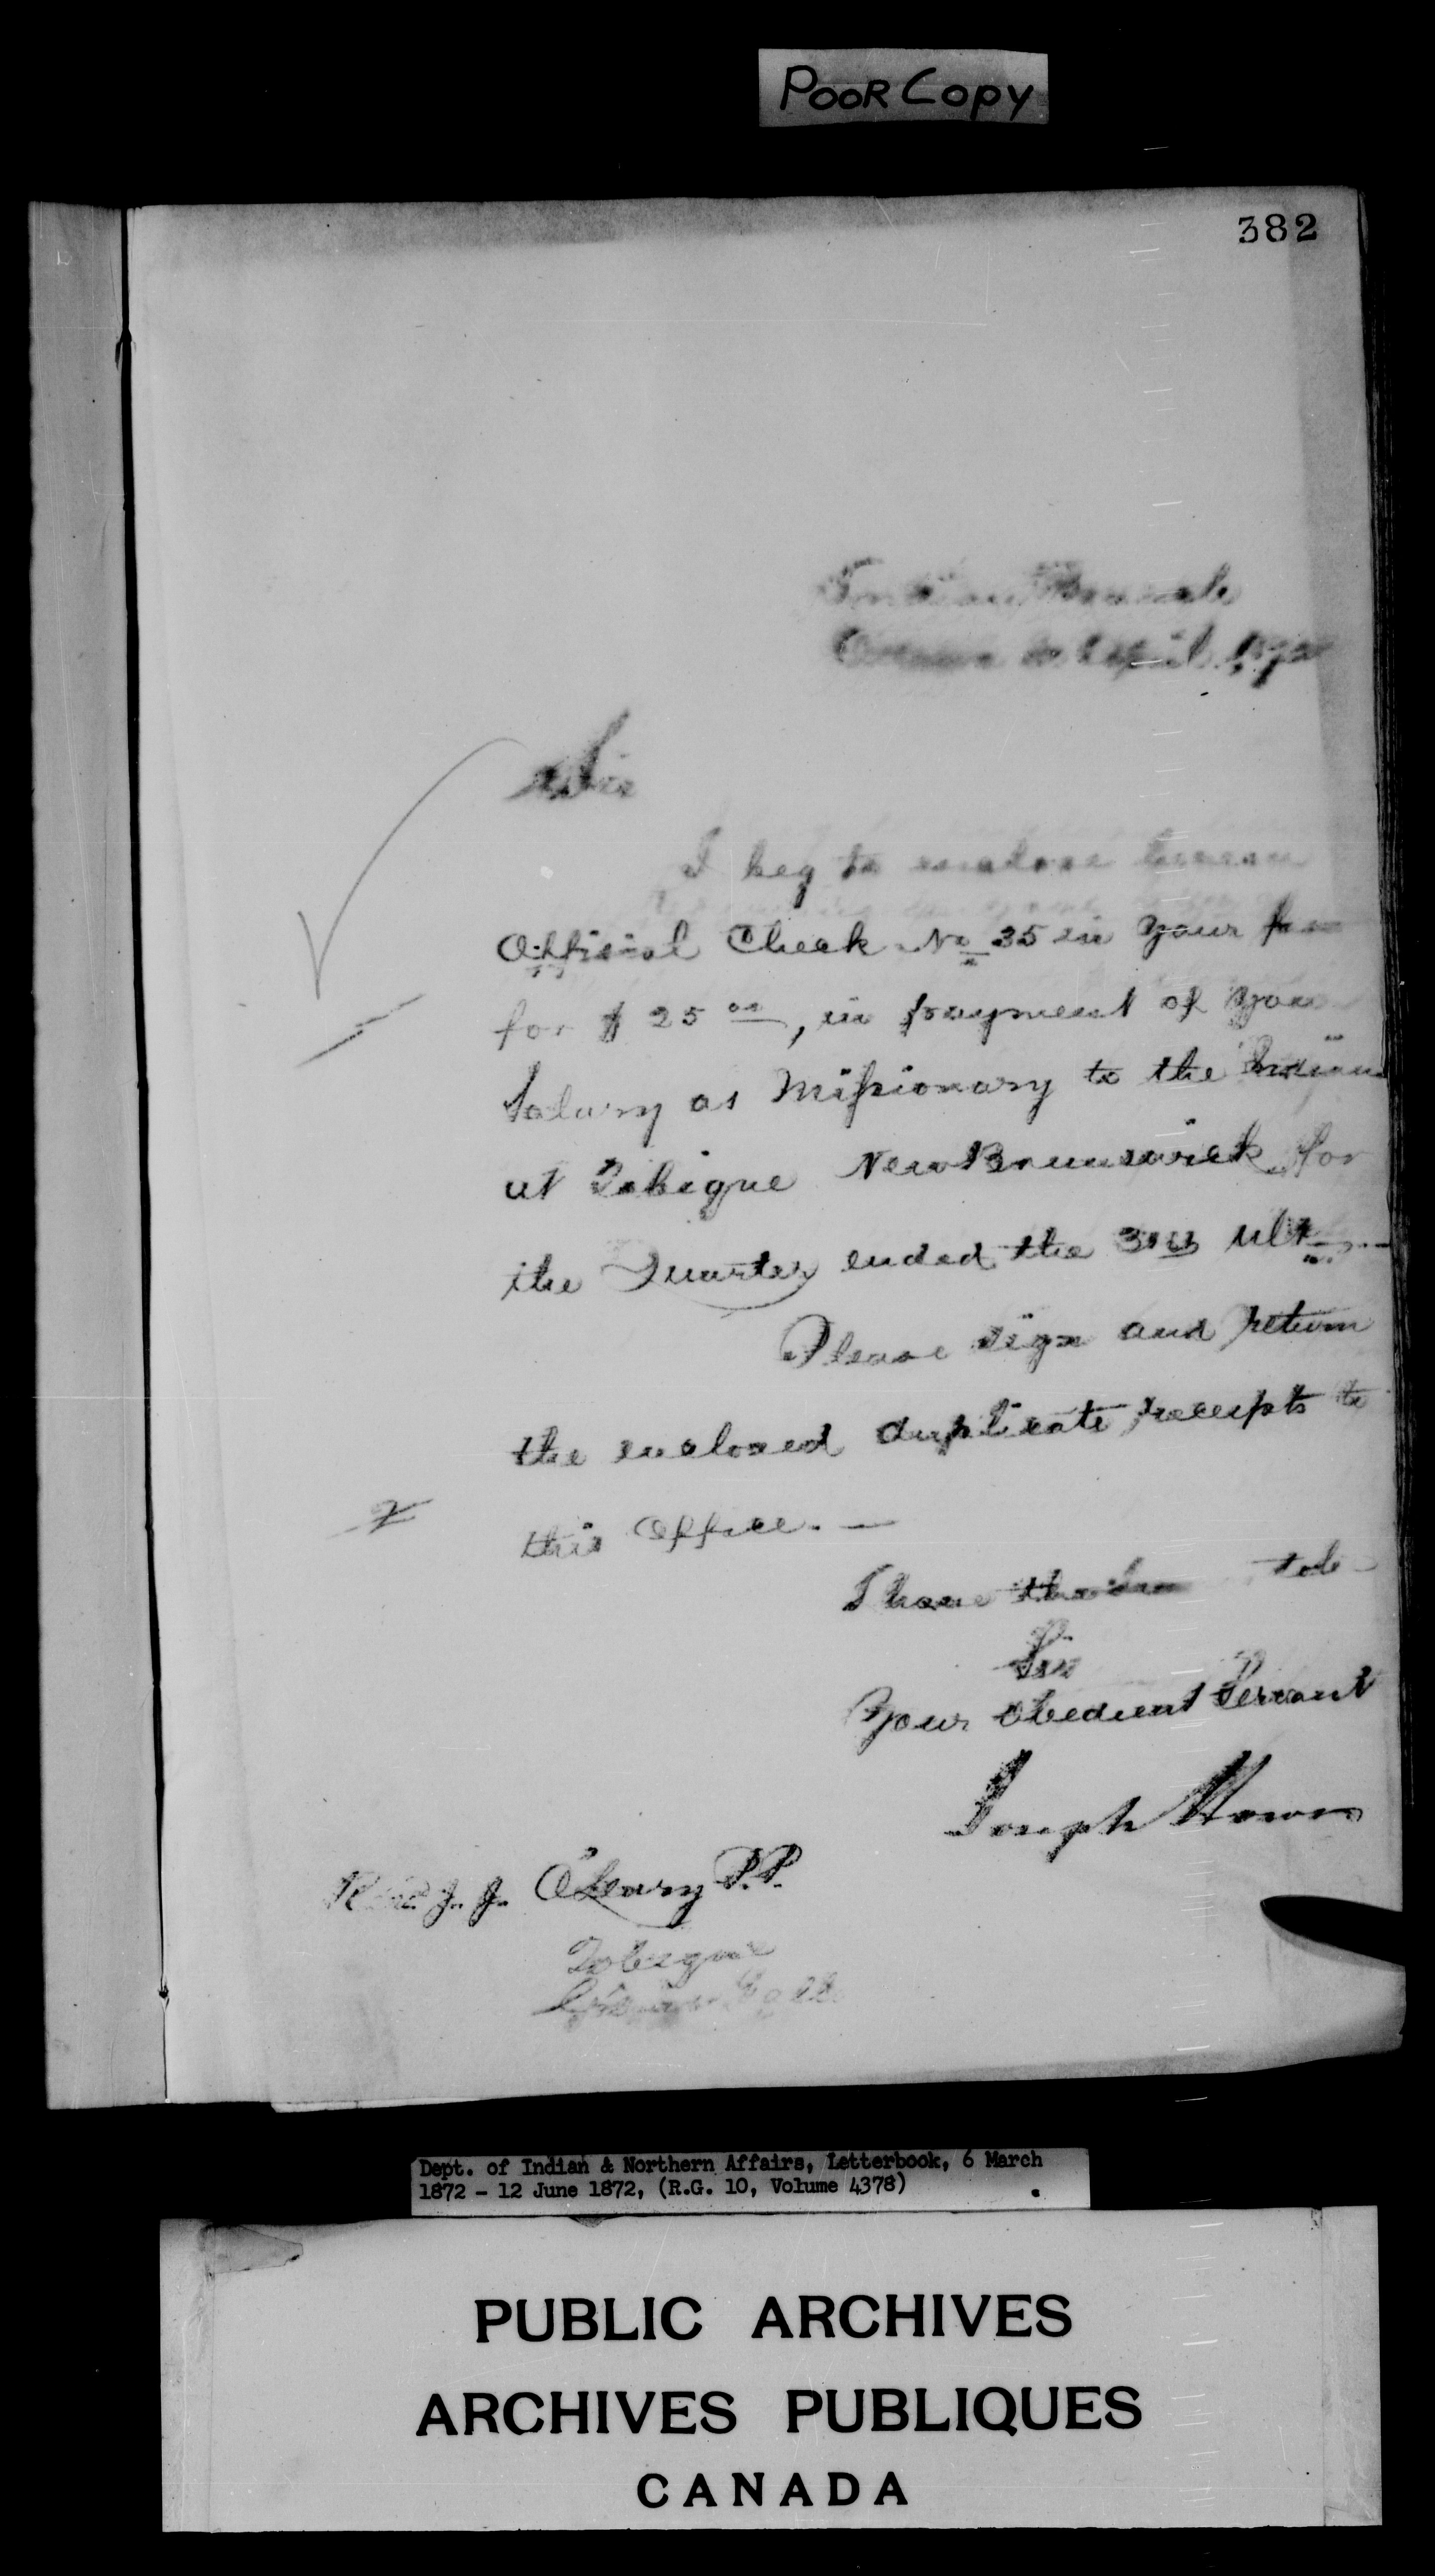 POOR COPY
382
Indian Branch
Ottawa April 1872
Sir
I beg to enclose hereon
Official Check No 35 in your
for $ 25 00, in payment of your
Salary as Missionary to the Indians
at Tobique New Brunswick for
the Quarter ended the 31st ulto.
Please sign and return
the enclosed duplicate receipts to
this Office. —
I have the honor to be
Sir
Your obedient Servant
Joseph Howe
Revd. J. J. O'Leary P.P.
Tobique
Dept. of Indian & Northern Affairs, Letterbook, 6 March
1872 - 12 June 1872, (R.G. 10, Volume 4378)
PUBLIC ARCHIVES
ARCHIVES PUBLIQUES
CANADA